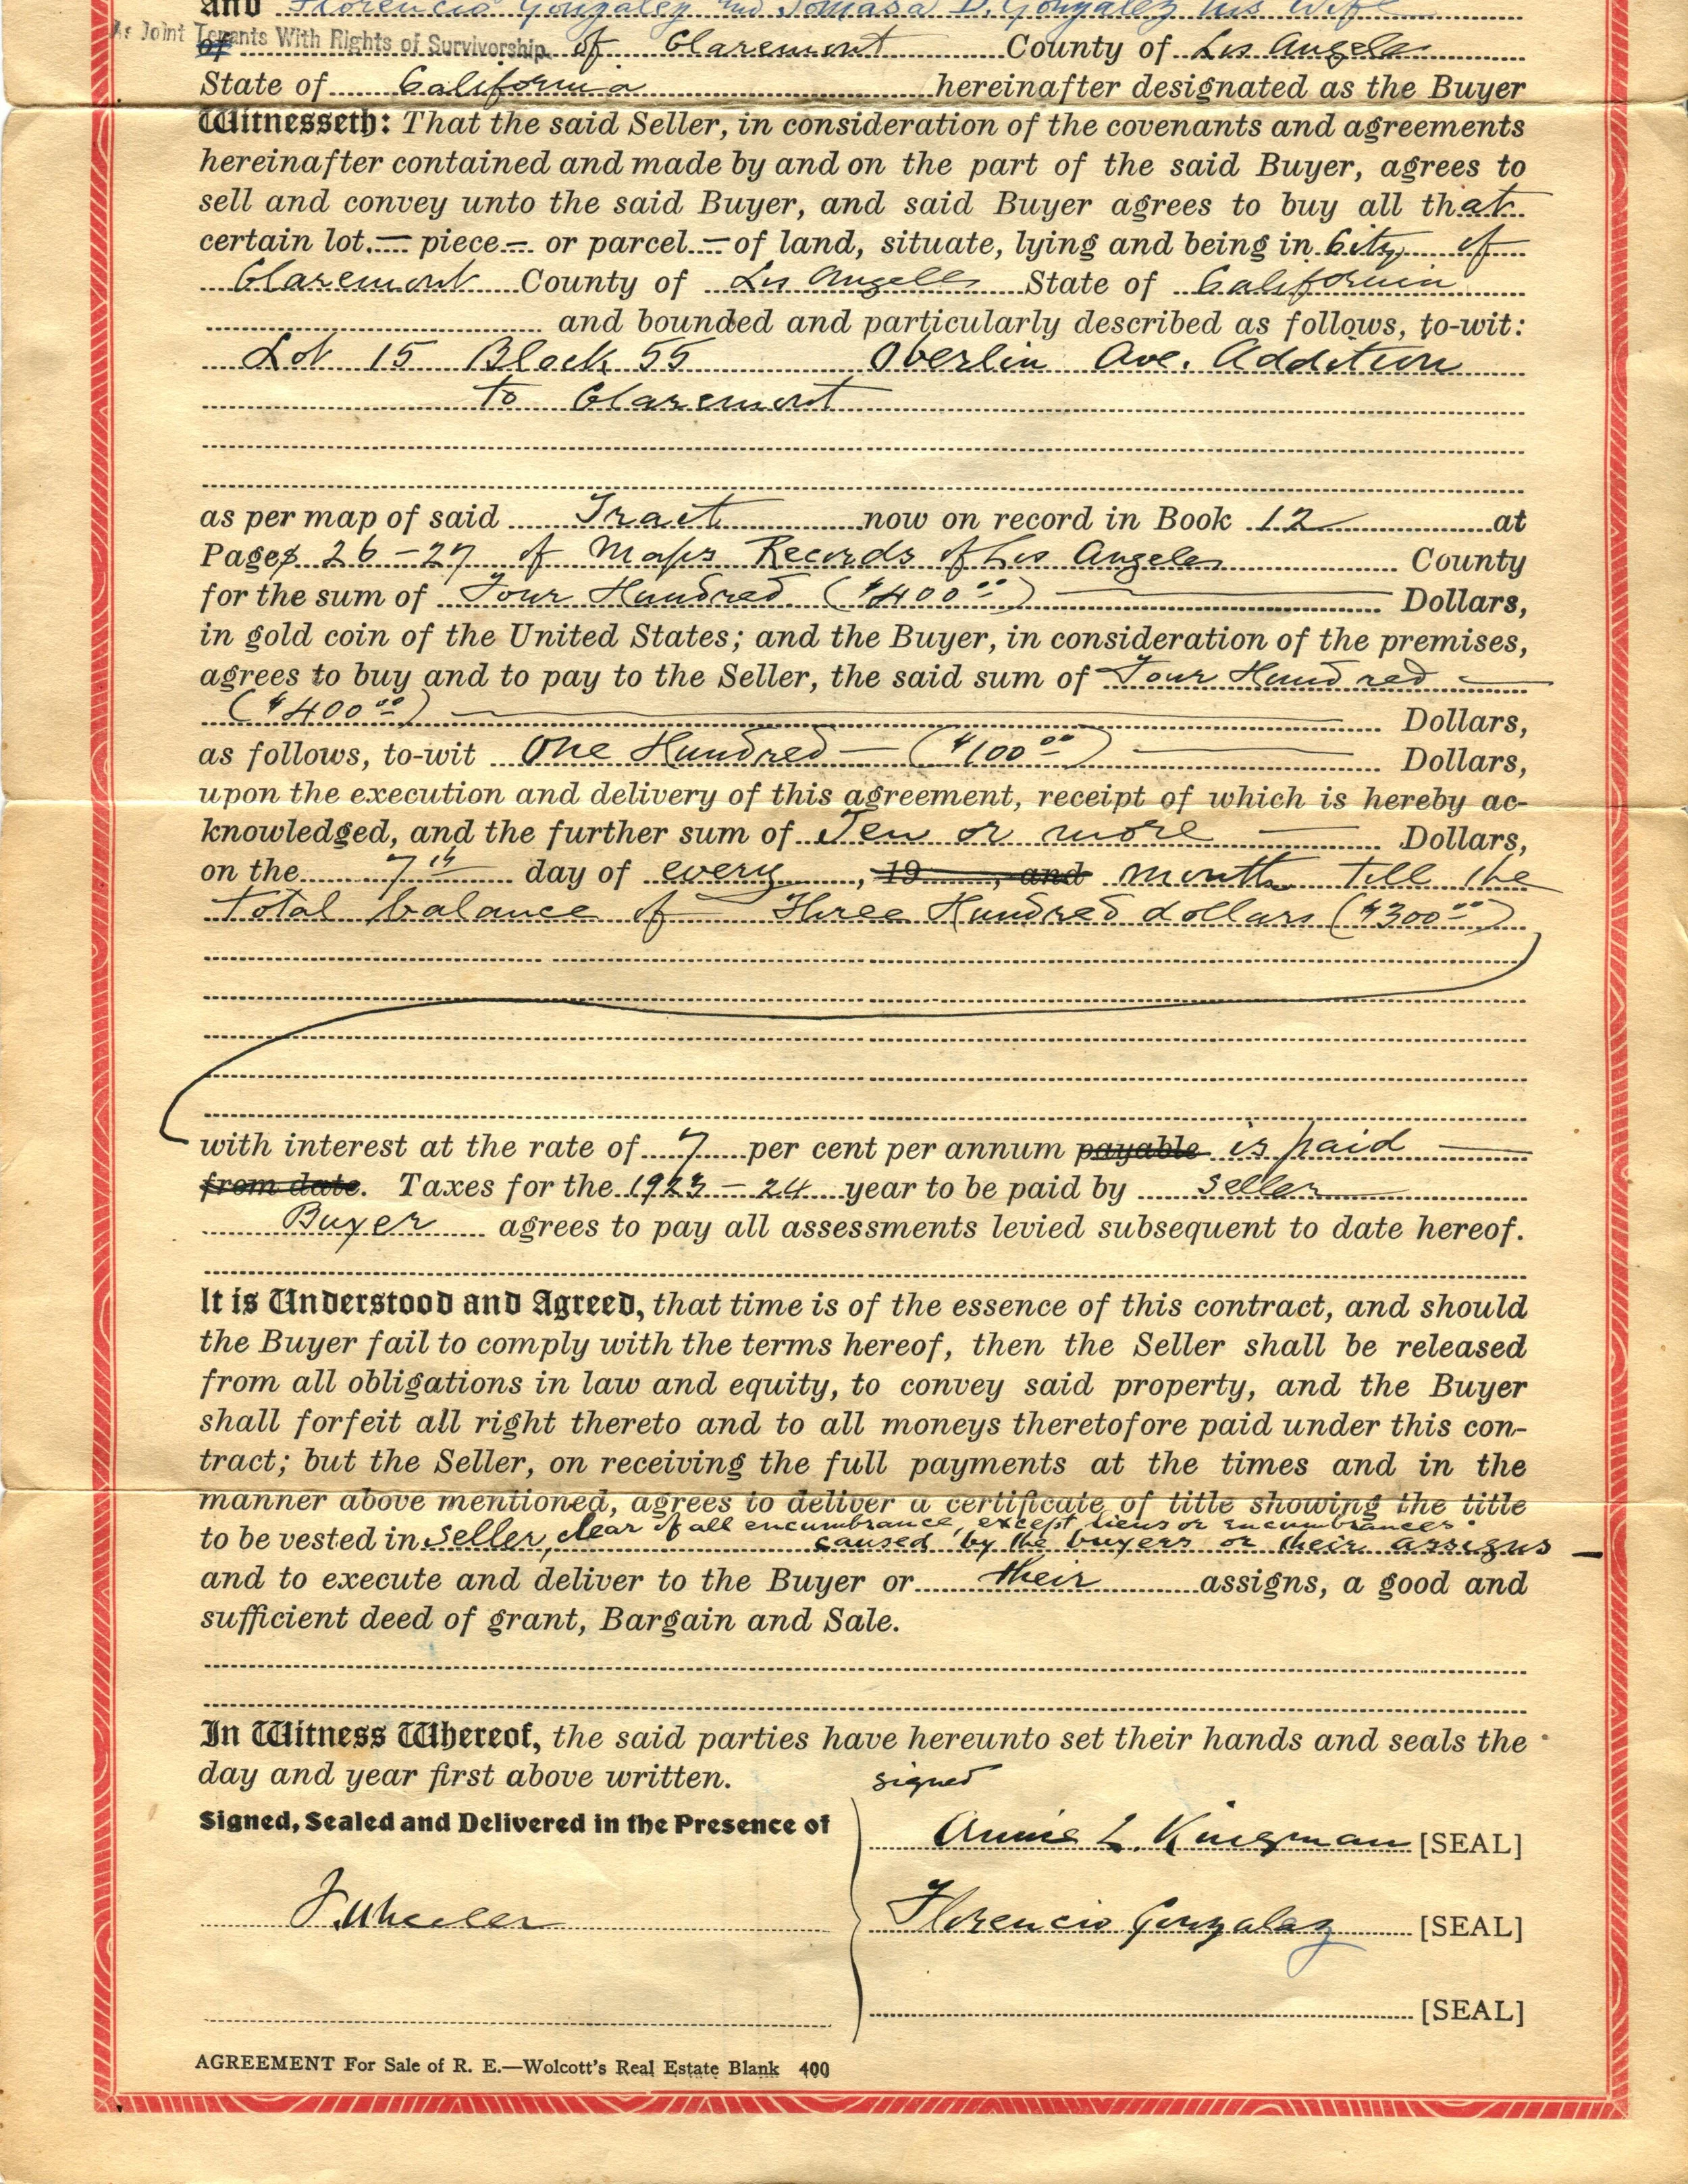 And Florencio Gonzalez and Tomasa D. Gonzalez his wife
As Joint Tenants With Rights of Survivorship
of of Claremont County of Los Angeles
State of California hereinafter designated as the Buyer
Witnesseth: That the said Seller, in consideration of the covenants and agreements
hereinafter contained and made by and on the part of the said Buyer, agrees to
sell and convey unto the said Buyer, and said Buyer agrees to buy all that
certain lot — piece — or parcel — of land, situate, lying and being in City of
Claremont County of Los Angeles State of California
and bounded and particularly described as follows, to-wit:
Lot 15 Block 55 Oberlin Ave. Addition
to Claremont
as per map of said Tract now on record in Book 12 at
Pages 26-27 of Maps Records of Los Angeles County
for the sum of Four Hundred ($400 00) Dollars,
in gold coin of the United States; and the Buyer, in consideration of the premises,
agrees to buy and to pay to the Seller, the said sum of Four Hundred
($400 00) Dollars,
as follows, to-wit One Hundred — ($100 00) Dollars,
upon the execution and delivery of this agreement, receipt of which is hereby ac-
knowledged, and the further sum of Ten or more Dollars,
on the 7th day of every , 19 , and month till the
total balance of Three Hundred dollars ($300 00)
with interest at the rate of 7 per cent per annum payable is paid
from date. Taxes for the 1923-24 year to be paid by seller
Buyer agrees to pay all assessments levied subsequent to date hereof.
It is Understood and Agreed, that time is of the essence of this contract, and should
the Buyer fail to comply with the terms hereof, then the Seller shall be released
from all obligations in law and equity, to convey said property, and the Buyer
shall forfeit all right thereto and to all moneys theretofore paid under this con-
tract; but the Seller, on receiving the full payments at the times and in the
manner above mentioned, agrees to deliver a certificate of title showing the title
to be vested in seller, clear of all encumbrance, except liens or encumbrances
caused by the buyers or their assigns —
and to execute and deliver to the Buyer or their assigns, a good and
sufficient deed of grant, Bargain and Sale.
In Witness Whereof, the said parties have hereunto set their hands and seals the
day and year first above written. signed
Signed, Sealed and Delivered in the Presence of
Annie L. Kingman [SEAL]
F. Wheeler Florencio Gonzalaz [SEAL]
[SEAL]
AGREEMENT For Sale of R. E.—Wolcott's Real Estate Blank 400